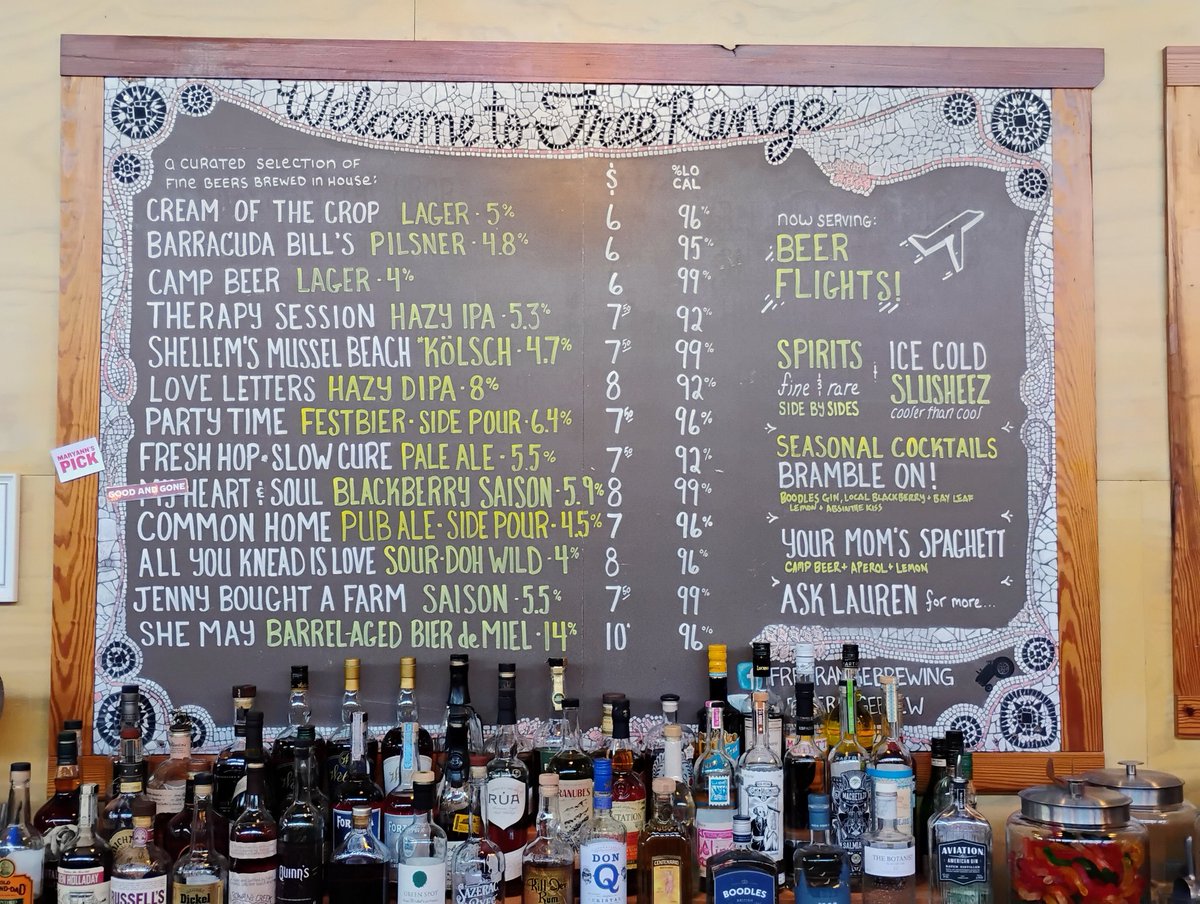 Welcome to Free Range
A CURATED SELECTION OF
FINE BEERS BREWED IN HOUSE:
$
%LO
CAL
CREAM OF THE CROP LAGER · 5% 6 96%
BARRACUDA BILL'S PILSNER · 4.8% 6 95%
CAMP BEER LAGER · 4% 6 99%
THERAPY SESSION HAZY IPA · 5.3% 7.50 92%
SHELLEM'S MUSSEL BEACH "KÖLSCH · 4.7% 7.50 99%
LOVE LETTERS HAZY DIPA · 8% 8 92%
PARTY TIME FESTBIER · SIDE POUR · 6.4% 7.50 96%
FRESH HOP · SLOW CURE PALE ALE · 5.5% 7.50 92%
HEART & SOUL BLACKBERRY SAISON · 5.9% 8 99%
COMMON HOME PUB ALE · SIDE POUR · 4.5% 7 96%
ALL YOU KNEAD IS LOVE SOUR-DOH WILD · 4% 8 96%
JENNY BOUGHT A FARM SAISON · 5.5% 7.50 99%
SHE MAY BARREL-AGED BIER de MIEL · 14% 10 96%
MARYANN'S
PICK
GOOD AND GONE
NOW SERVING:
BEER
FLIGHTS!
SPIRITS
fine & rare
SIDE BY SIDES
&
ICE COLD
SLUSHEEZ
cooler than cool
SEASONAL COCKTAILS
BRAMBLE ON!
BOODLES GIN, LOCAL BLACKBERRY + BAY LEAF
LEMON + ABSINTHE KISS
YOUR MOM'S SPAGHETT
CAMP BEER + APEROL + LEMON
ASK LAUREN for more...
FREERANGEBREWING
RÚA
DON
Q
CRISTAL
GREEN
SPOT
SAZERAC
RUSSELL'S
Dickel
Quinn's
HOLLADAY
Riff
Rum
CENTENARIO
BOODLES
THE BOTANIST
AVIATION
AMERICAN GIN